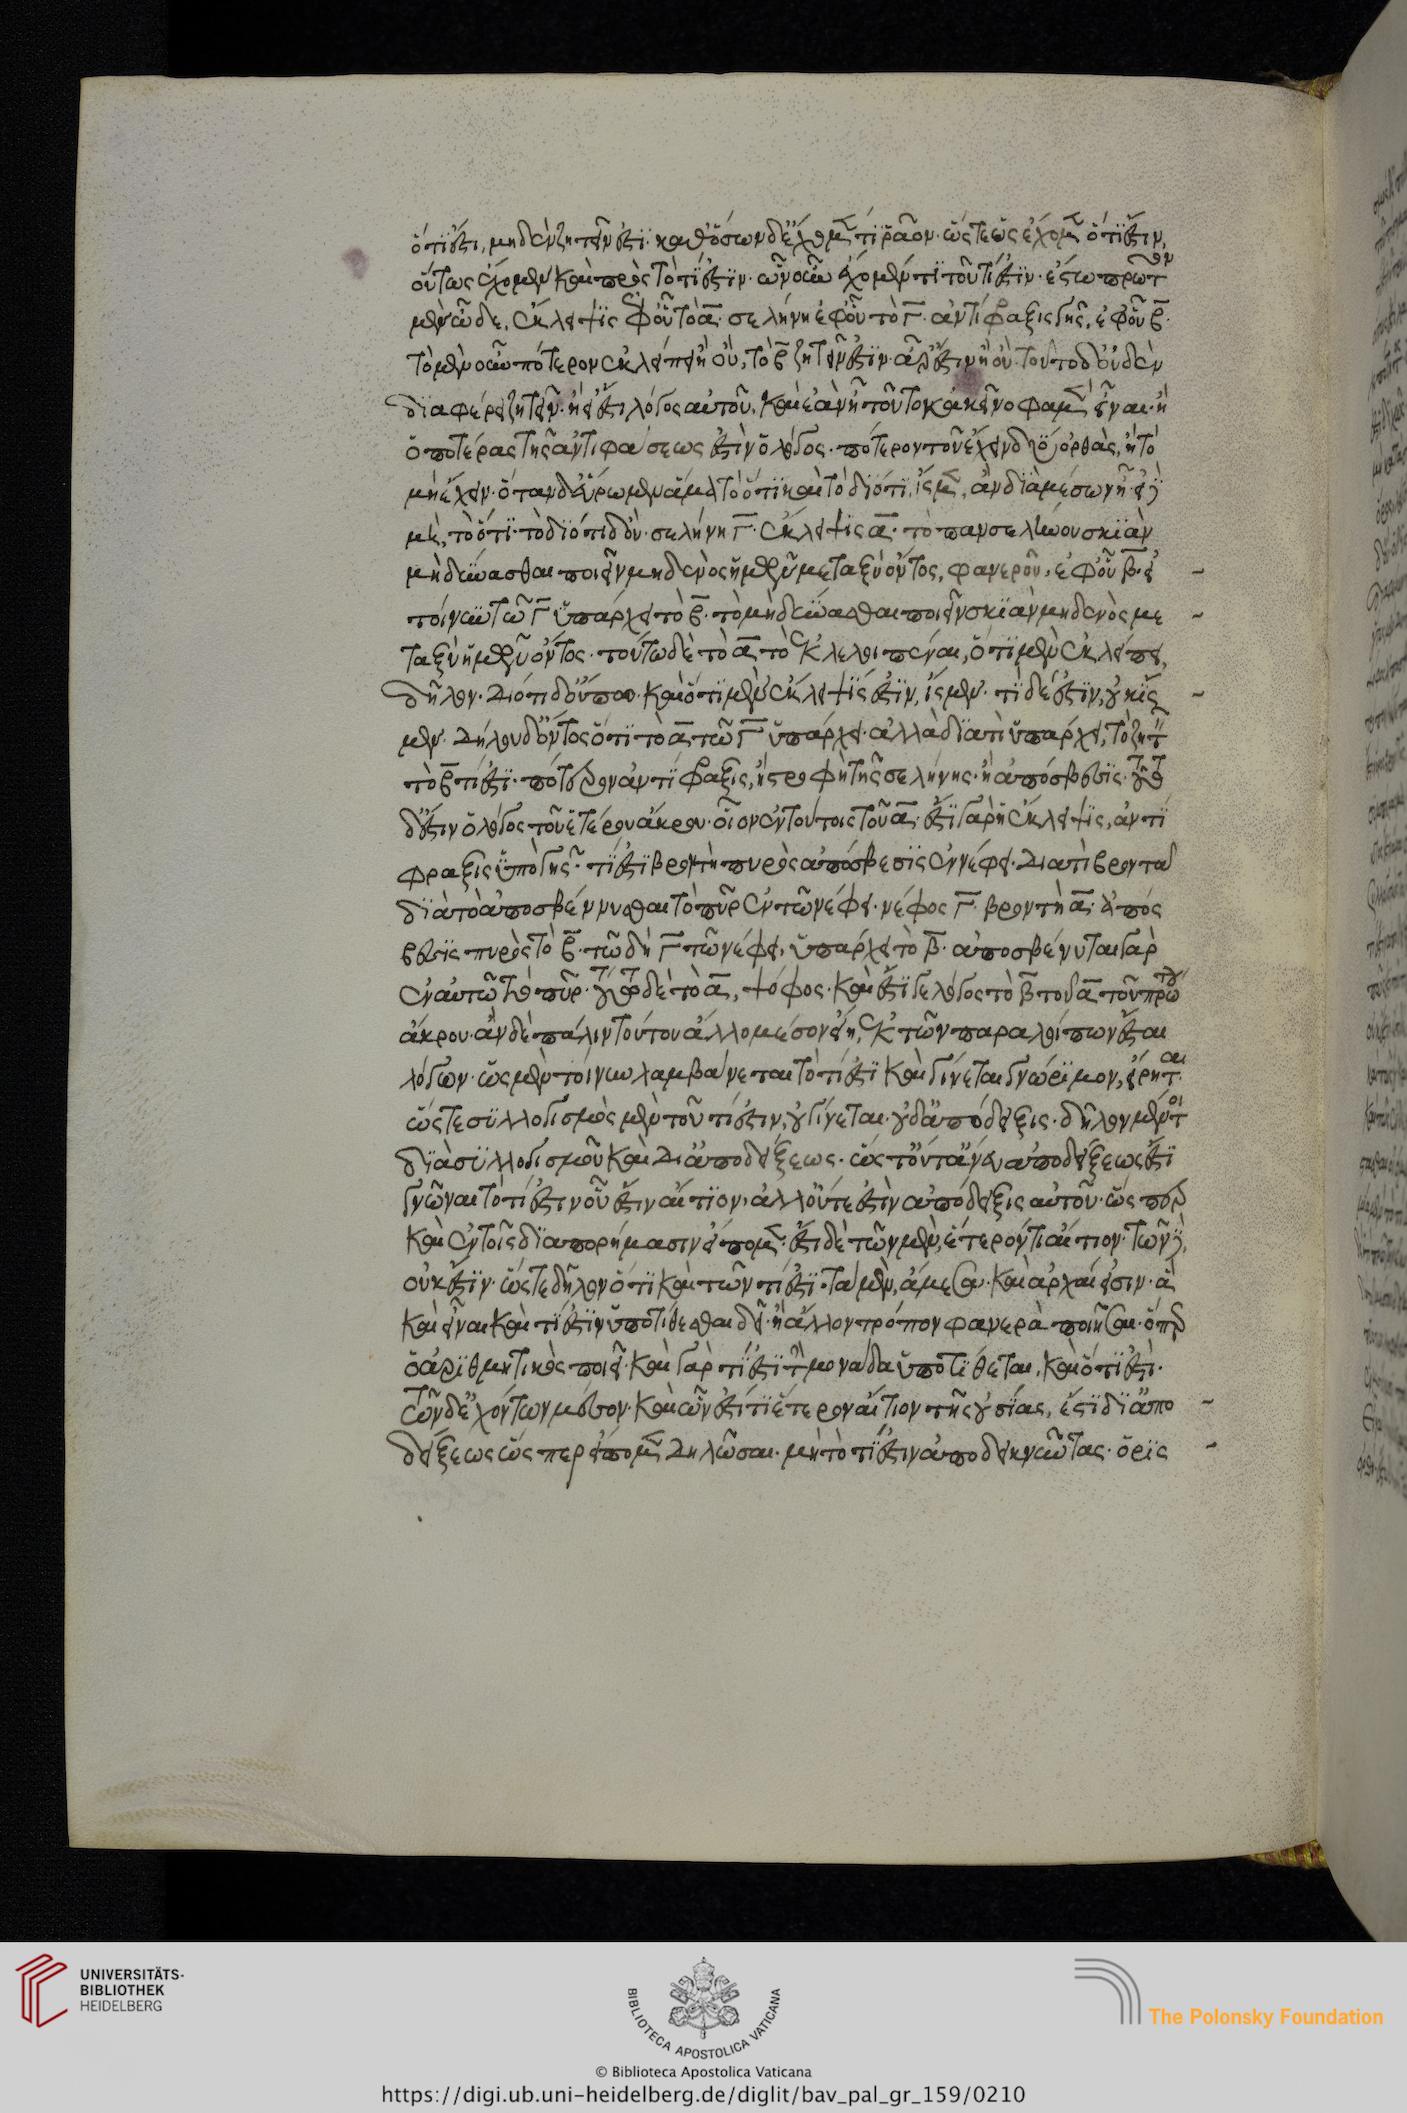 ὅτι ἔστι, μηδὲν ζητεῖν ἐστι. καθ' ὅσων δ' ἔχομέν τι ῥᾶον. ὥστε ὡς ἔχομεν ὅτι ἔστιν,
οὕτως ἔχομεν καὶ πρὸς τὸ τί ἐστιν. ὧν οὖν ἔχομέν τι τοῦ τί ἐστιν. ἔστω πρῶτον
μὲν ὧδε, ἔκλειψις ἐφ' οὗ τὸ α. σελήνη ἐφ' οὗ τὸ Γ. ἀντίφραξις γῆς, ἐφ' οὗ β.
τὸ μὲν οὖν πότερον ἐκλείπει ἢ οὔ, τὸ β ζητεῖν ἔστιν. ἆρ' ἔστιν ἢ οὔ. τοῦτο δ' οὐδὲν
διαφέρει ζητεῖν. ἢ εἰ ἔστι λόγος αὐτοῦ. καὶ ἐὰν ἦ τοῦτο κἀκεῖνο φαμὲν εἶναι. ἢ
ὁποτέρας τῆς ἀντιφάσεως ἐστὶν ὁ λόγος. πότερον τοῦ ἔχειν δύο ὀρθὰς, ἢ τὸ
μὴ ἔχειν. ὅταν δ' εὕρωμεν ἅμα τὸ ὅτι καὶ τὸ διότι ἴσμεν, ἂν διὰ μέσων ἦ. εἰ δὲ
μὴ, τὸ ὅτι. τὸ διότι δ' οὔ. σελήνη Γ. ἔκλειψις α. τὸ πανσελήνου σκιὰν
μὴ δύνασθαι ποιεῖν μηδενὸς ἡμῶν μεταξὺ ὄντος, φανεροῦ, ἐφ' οὗ β. εἰ
τοίνυν τῶ Γ ὑπάρχει τὸ β. τὸ μὴ δύνασθαι ποιεῖν σκιὰν μηδενὸς με
ταξὺ ἡμῶν ὄντος. τούτω δὲ τὸ α τὸ ἐκλελοιπέναι, ὅτι μὲν ἐκλείπει,
δῆλον. διότι δ' οὔπω. καὶ ὅτι μὲν ἔκλειψίς ἐστιν, ἴσμεν. τί δέ ἐστιν, οὐκ ἴσ
μεν. δήλου δ' ὄντος ὅτι τὸ α τῶ Γ ὑπάρχει. ἀλλὰ διατί ὑπάρχει, τὸ ζητεῖν
τὸ β τί ἐστι. πότερον ἀντίφραξις, ἢ στροφὴ τῆς σελήνης. ἢ ἀπόσβεσις. τοῦτο
δ' ἔστιν ὁ λόγος τοῦ ἑτέρου ἄκρου. οἷον ἐν τούτοις τοῦ α. ἔστι γὰρ ἡ ἔκλειψις, ἀντί
φραξις ὑπὸ γῆς. τί ἐστι βροντὴ πυρὸς ἀπόσβεσις ἐν νέφει. διατί βροντᾶ
διὰ τὸ ἀποσβέννυσθαι τὸ πῦρ ἐν τῶ νέφει. νέφος Γ. βροντὴ α. ἀπόσ
βεσις πυρὸς τὸ β. τῶ δὴ Γ τῶ νέφει, ὑπάρχει τὸ β. ἀποσβένυται γὰρ
ἐν αὐτῶ τὸ πῦρ. τούτω δὲ τὸ α, ψόφος. καὶ ἔστι γε λόγος τὸ β τοῦ α τοῦ πρώτου
ἄκρου. ἂν δὲ πάλιν τούτου ἄλλο μέσον εἴη, ἐκ τῶν παραλοίπων ἔσται
λόγων. ὡς μὲν τοίνυν λαμβάνεται τὸ τί ἐστι καὶ γίνεται γνώριμον, εἴρηται.
ὥστε συλλογισμὸς μὲν τοῦ τί ἐστιν, οὐ γίνεται. οὐδ' ἀπόδειξις. δῆλον μέντοι
διὰ συλλογισμοῦ καὶ δι' ἀποδείξεως. ὥστ' οὔτ' ἄνευ ἀποδείξεως ἔστι
γνῶναι τὸ τί ἐστιν οὗ ἔστιν αἴτιον, ἀλλ' οὔτε ἐστὶν ἀπόδειξις αὐτοῦ. ὥσπερ
καὶ ἐν τοῖς διαπορήμασιν εἴπομεν. ἔστι δὲ τῶν μὲν, ἕτερόν τι αἴτιον. τῶν δὲ,
οὐκ ἔστιν. ὥστε δῆλον ὅτι καὶ τῶν τί ἐστι. τὰ μὲν, ἄμεσα. καὶ ἀρχαί εἰσιν. ἃ
καὶ εἶναι καὶ τί ἐστιν ὑποτίθεσθαι δεῖ. ἢ ἄλλον τρόπον φανερὰ ποιῆσαι. ὅπερ
ὁ ἀριθμητικὸς ποιεῖ. καὶ γὰρ τί ἐστι τὴν μονάδα ὑποτίθεται, καὶ ὅτι ἔστι.
τῶν δ' ἐχόντων μέσον. καὶ ὧν ἐστί τι ἕτερον αἴτιον τῆς οὐσίας, ἔστι δι' ἀπο
δείξεως ὥσπερ εἴπομεν δηλῶσαι. μὴ τὸ τί ἐστιν ἀποδεικνύντας. ὁρις
UNIVERSITÄTS-
BIBLIOTHEK
HEIDELBERG
BIBLIOTECA APOSTOLICA VATICANA
The Polonsky Foundation
© Biblioteca Apostolica Vaticana
https://digi.ub.uni-heidelberg.de/diglit/bav_pal_gr_159/0210